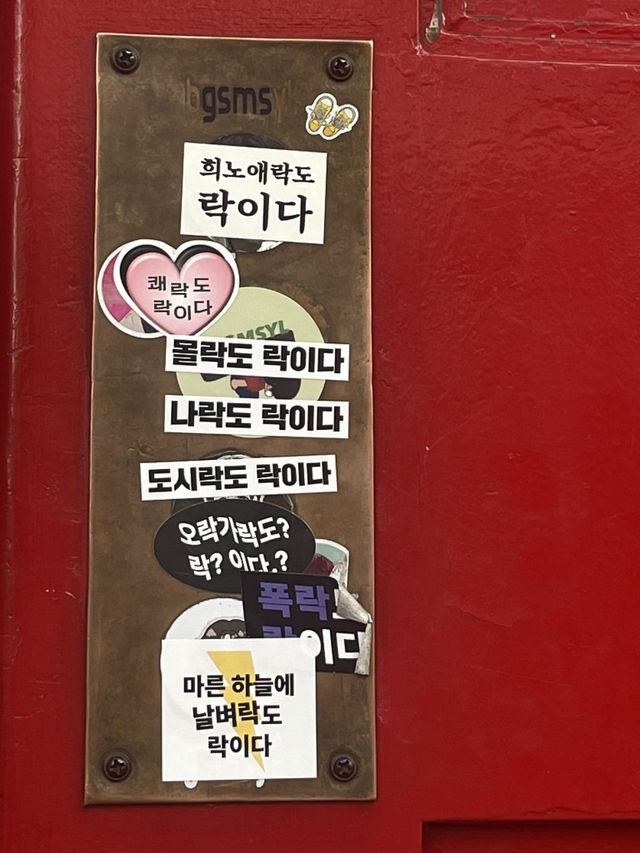 gsms
희노애락도
락이다
쾌락도
락이다
GSMSYL
몰락도 락이다
나락도 락이다
도시락도 락이다
오락가락도?
락? 이다.?
폭락
락이다
마른 하늘에
날벼락도
락이다